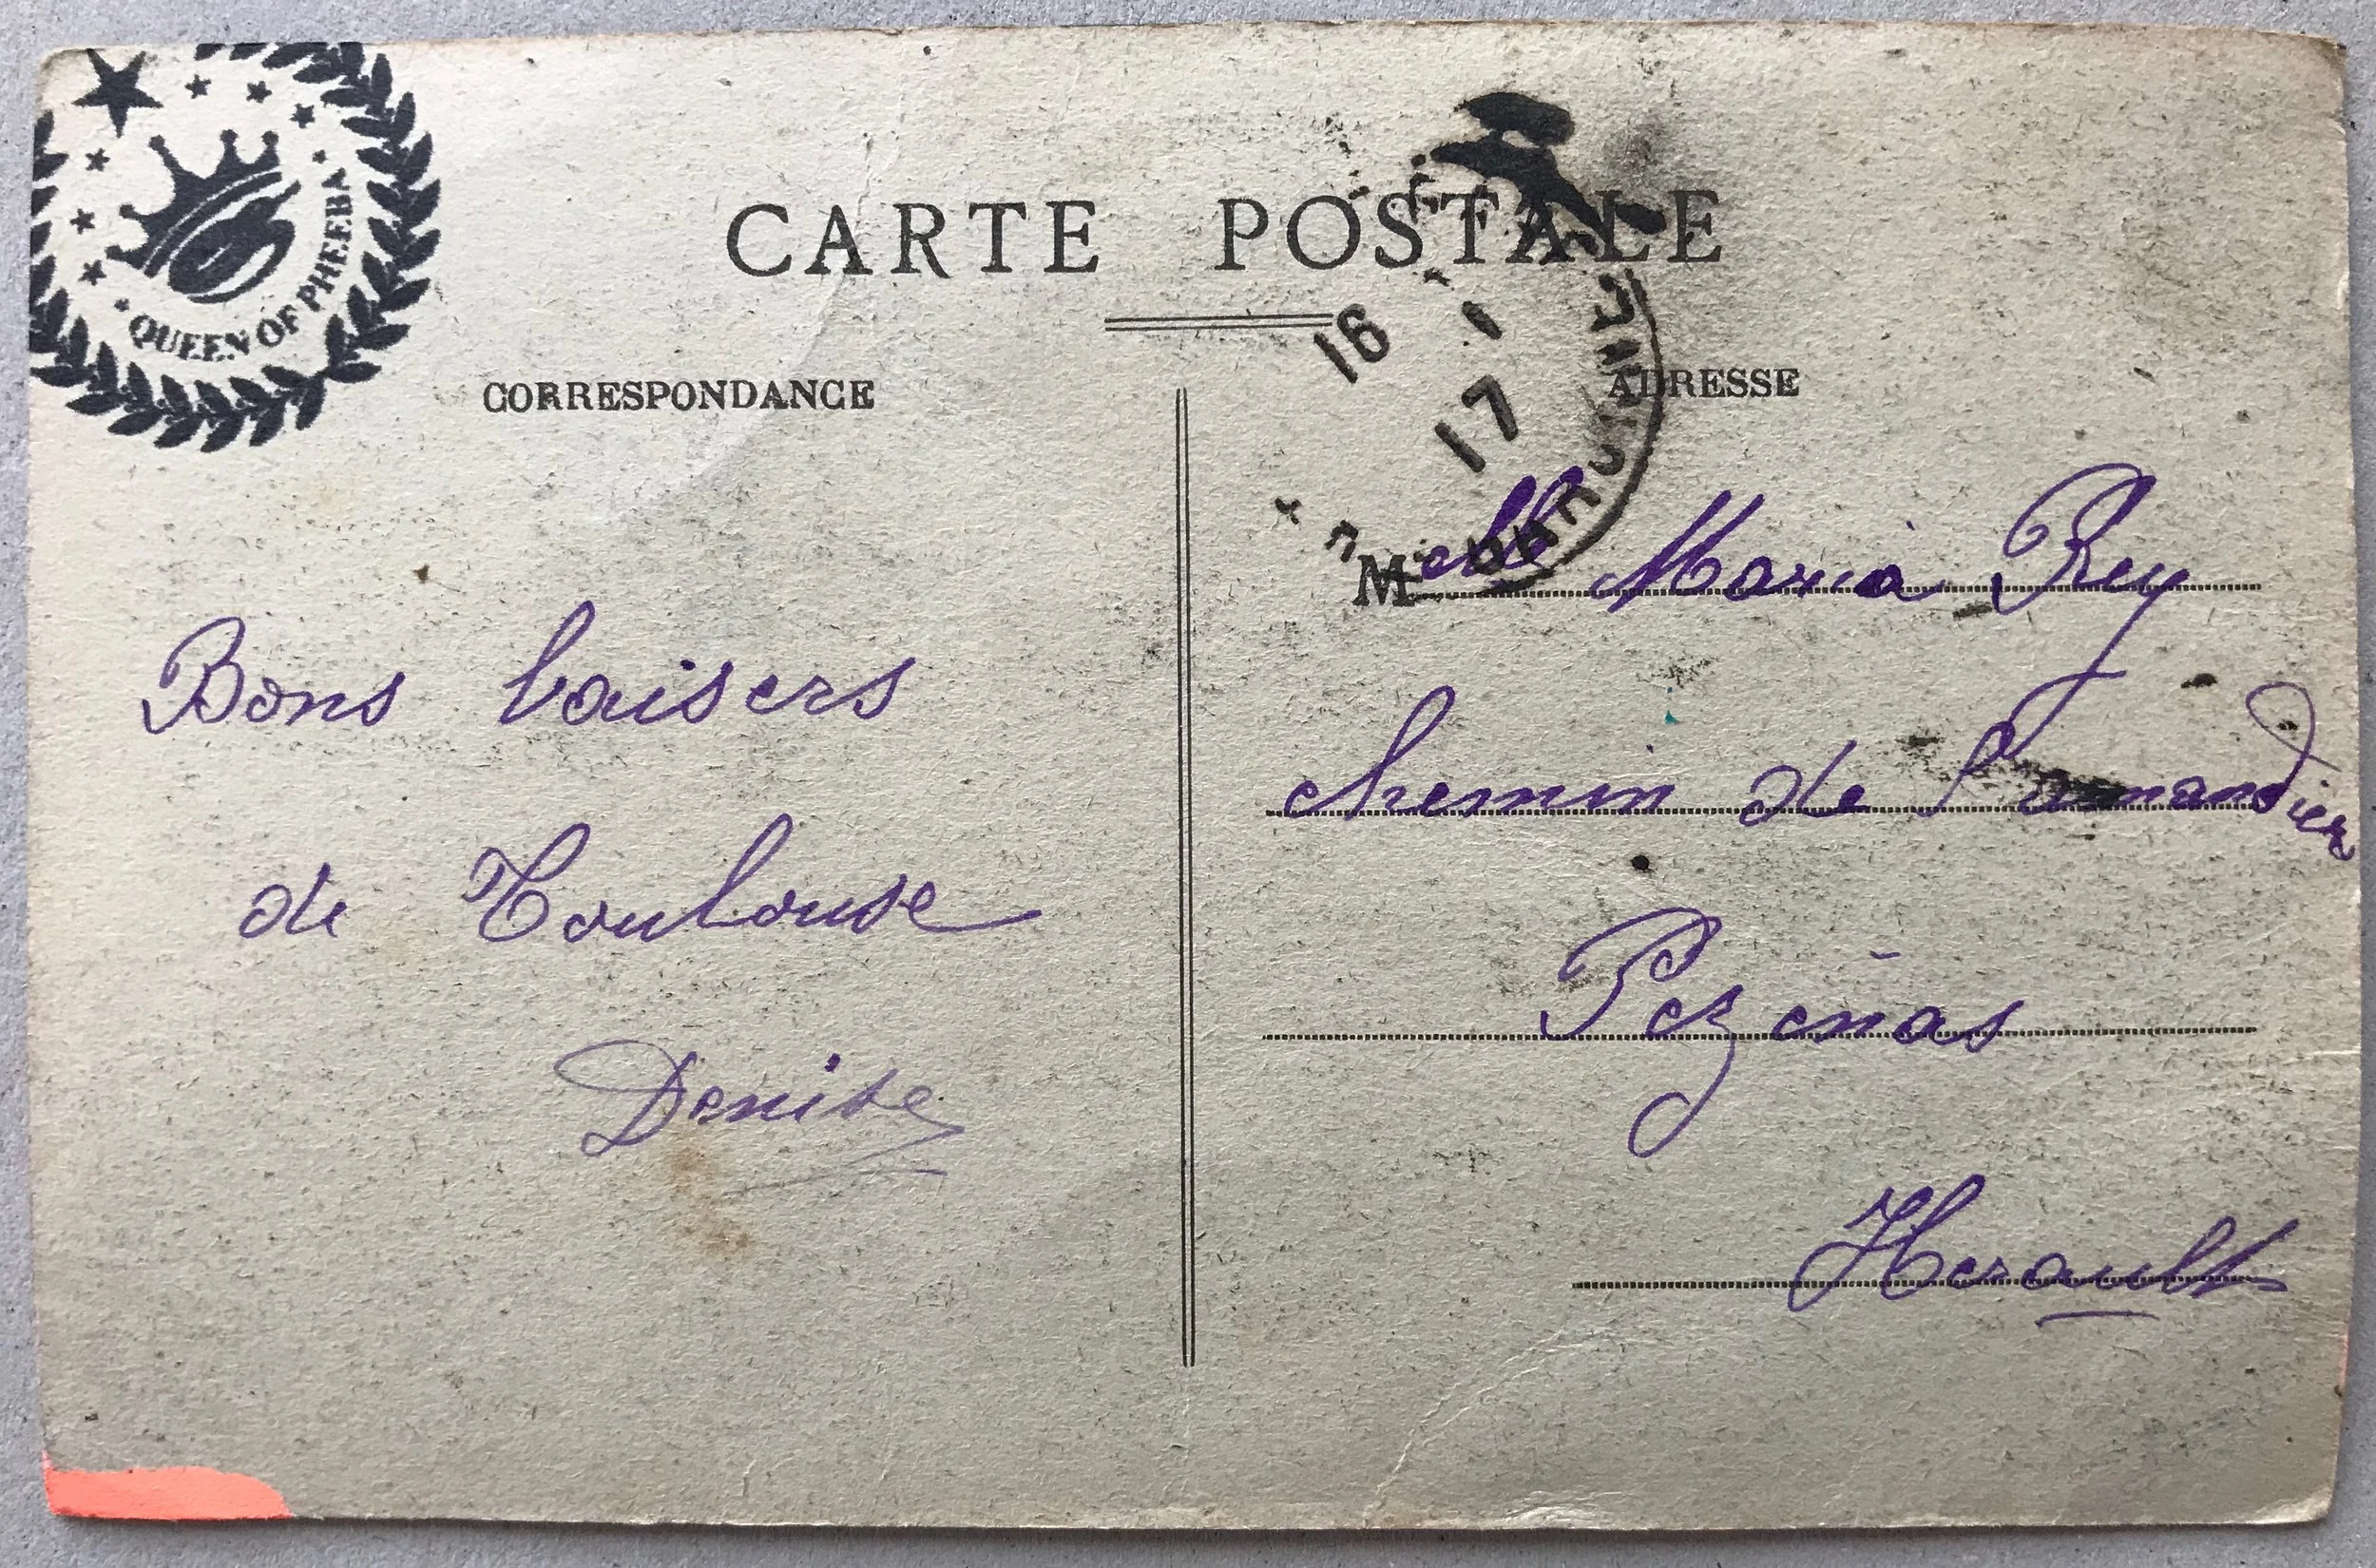 QUEEN OF PHEEBA
CARTE POSTALE
CORRESPONDANCE
ADRESSE
16 1
17
Bons baisers
de Toulouse
Denise
Melle Maria Rey
chemin de l'amandier
Pezenas
Herault